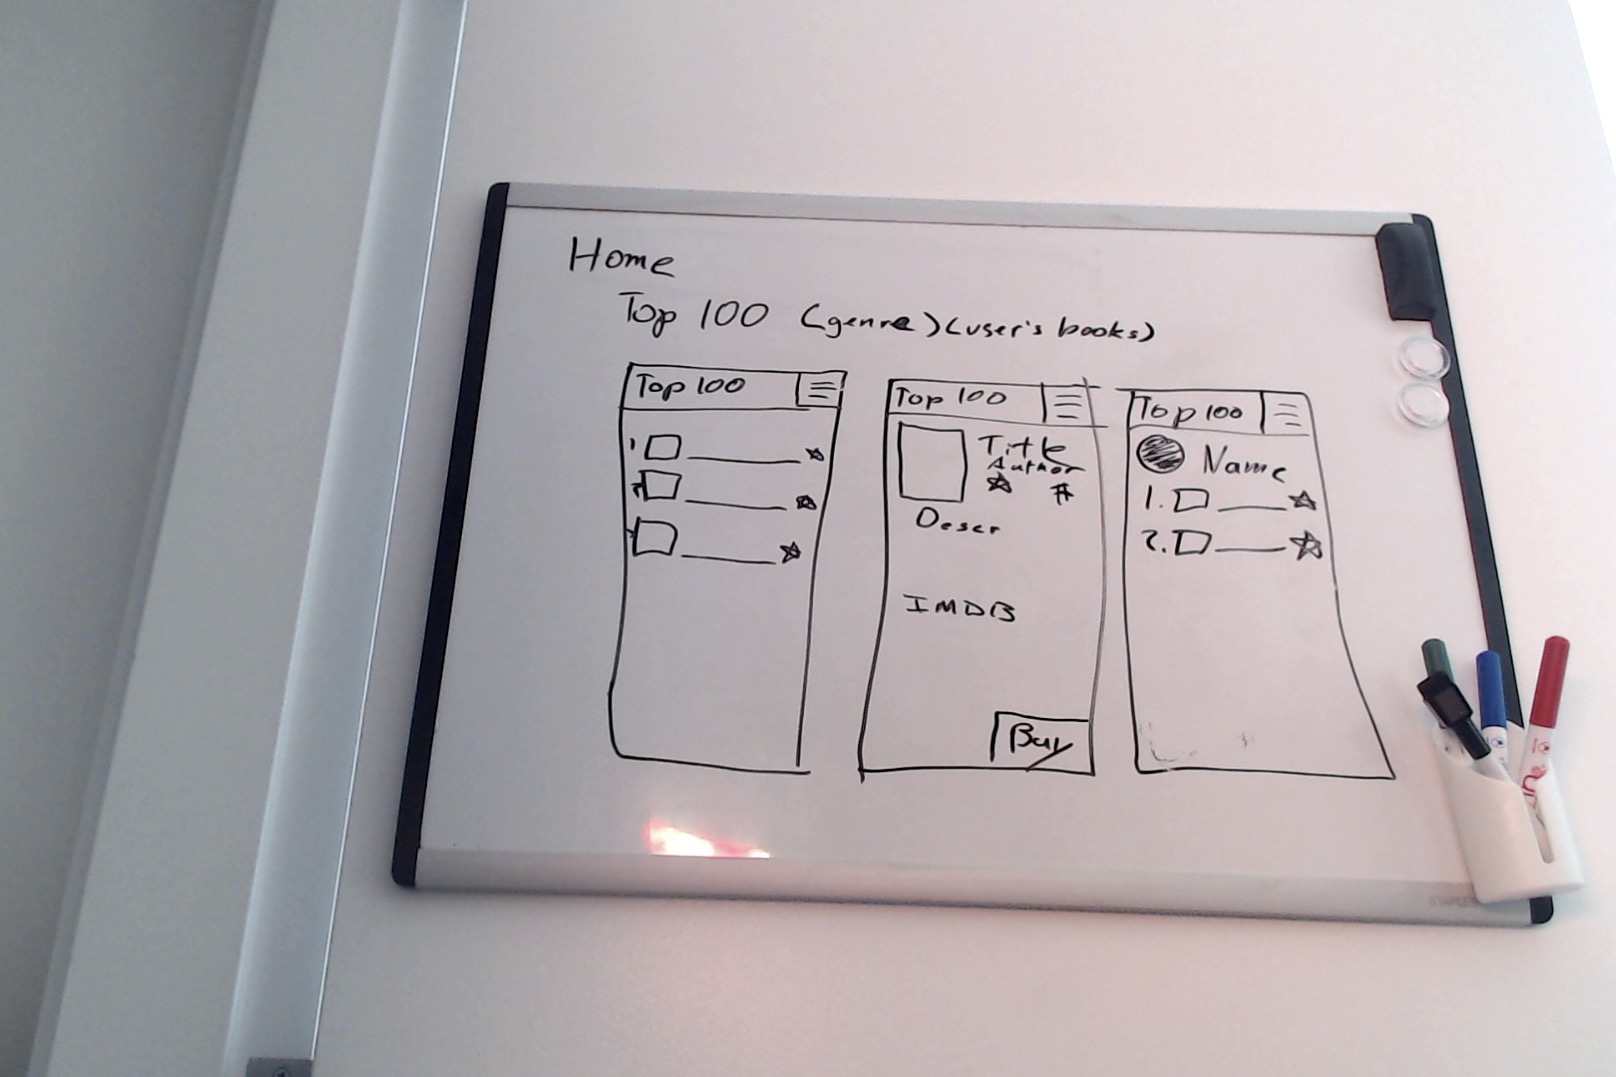 Home
Top 100 (genre) (user's books)
Top 100
1
2
3
Top 100
Title
Author
#
Descr
IMDB
Buy
Top 100
Name
1.
2.